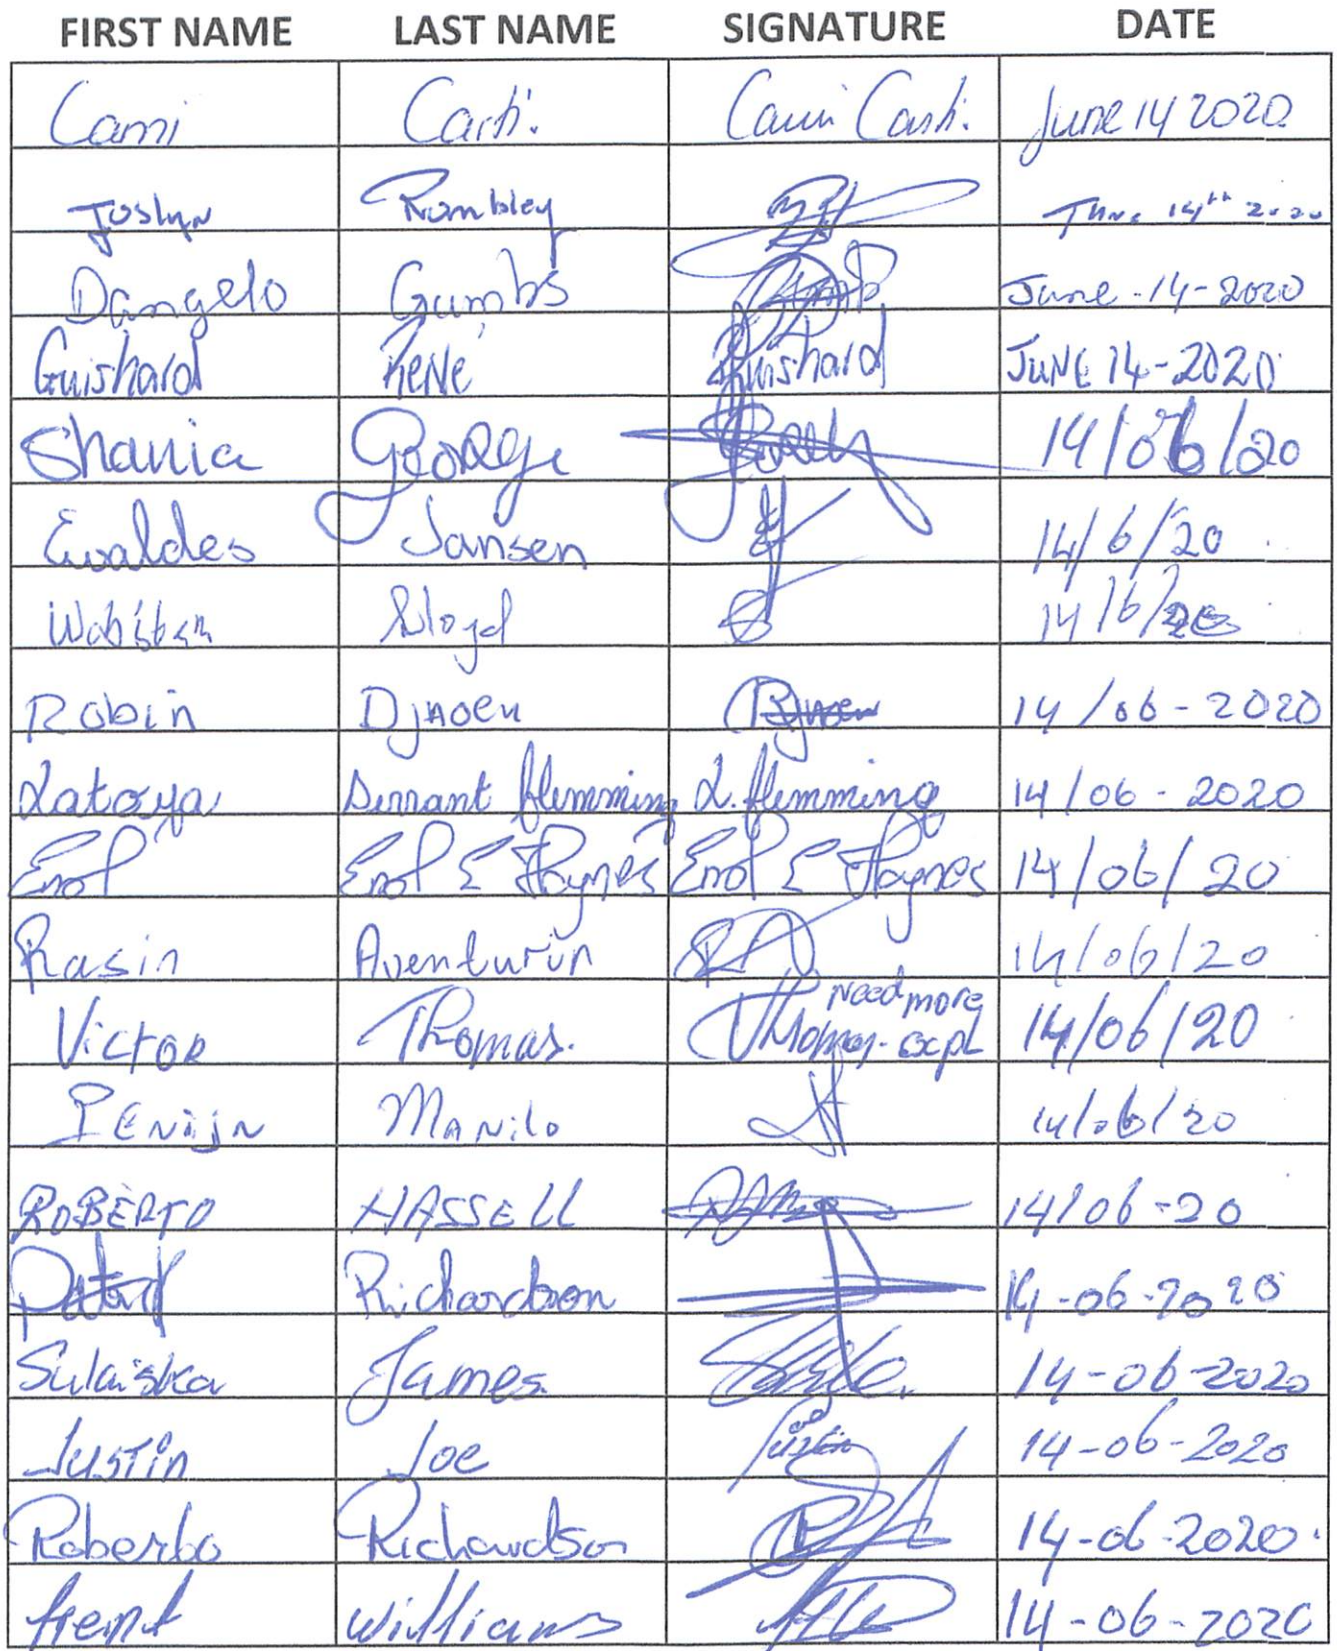 FIRST NAME LAST NAME SIGNATURE DATE
Cami Carti. Cami Carti. June 14 2020
Joslyn Rombley June 14th 2020
Dangelo Gumbs June-14-2020
Guishard René Guishard JUNE 14-2020
Shania George 14/06/20
Ewaldes Jansen 14/6/20
Lloyd 14/6/20
Robin Djnoen Djnoen 14/06-2020
Latoya Serrant flemming L.flemming 14/06-2020
Errol Errol E Haynes Errol E Haynes 14/06/20
Rasin Aventurin 14/06/20
Victor Thomas. VThomas. need more expl 14/06/20
PENijn MANilo 14/06/20
ROBERTO HASSELL 14/06-20
Richardson 14-06-2020
Sulaiska James 14-06-2020
JUSTin Joe Justin 14-06-2020
Roberto Richardson 14-06-2020.
Williams 14-06-2020